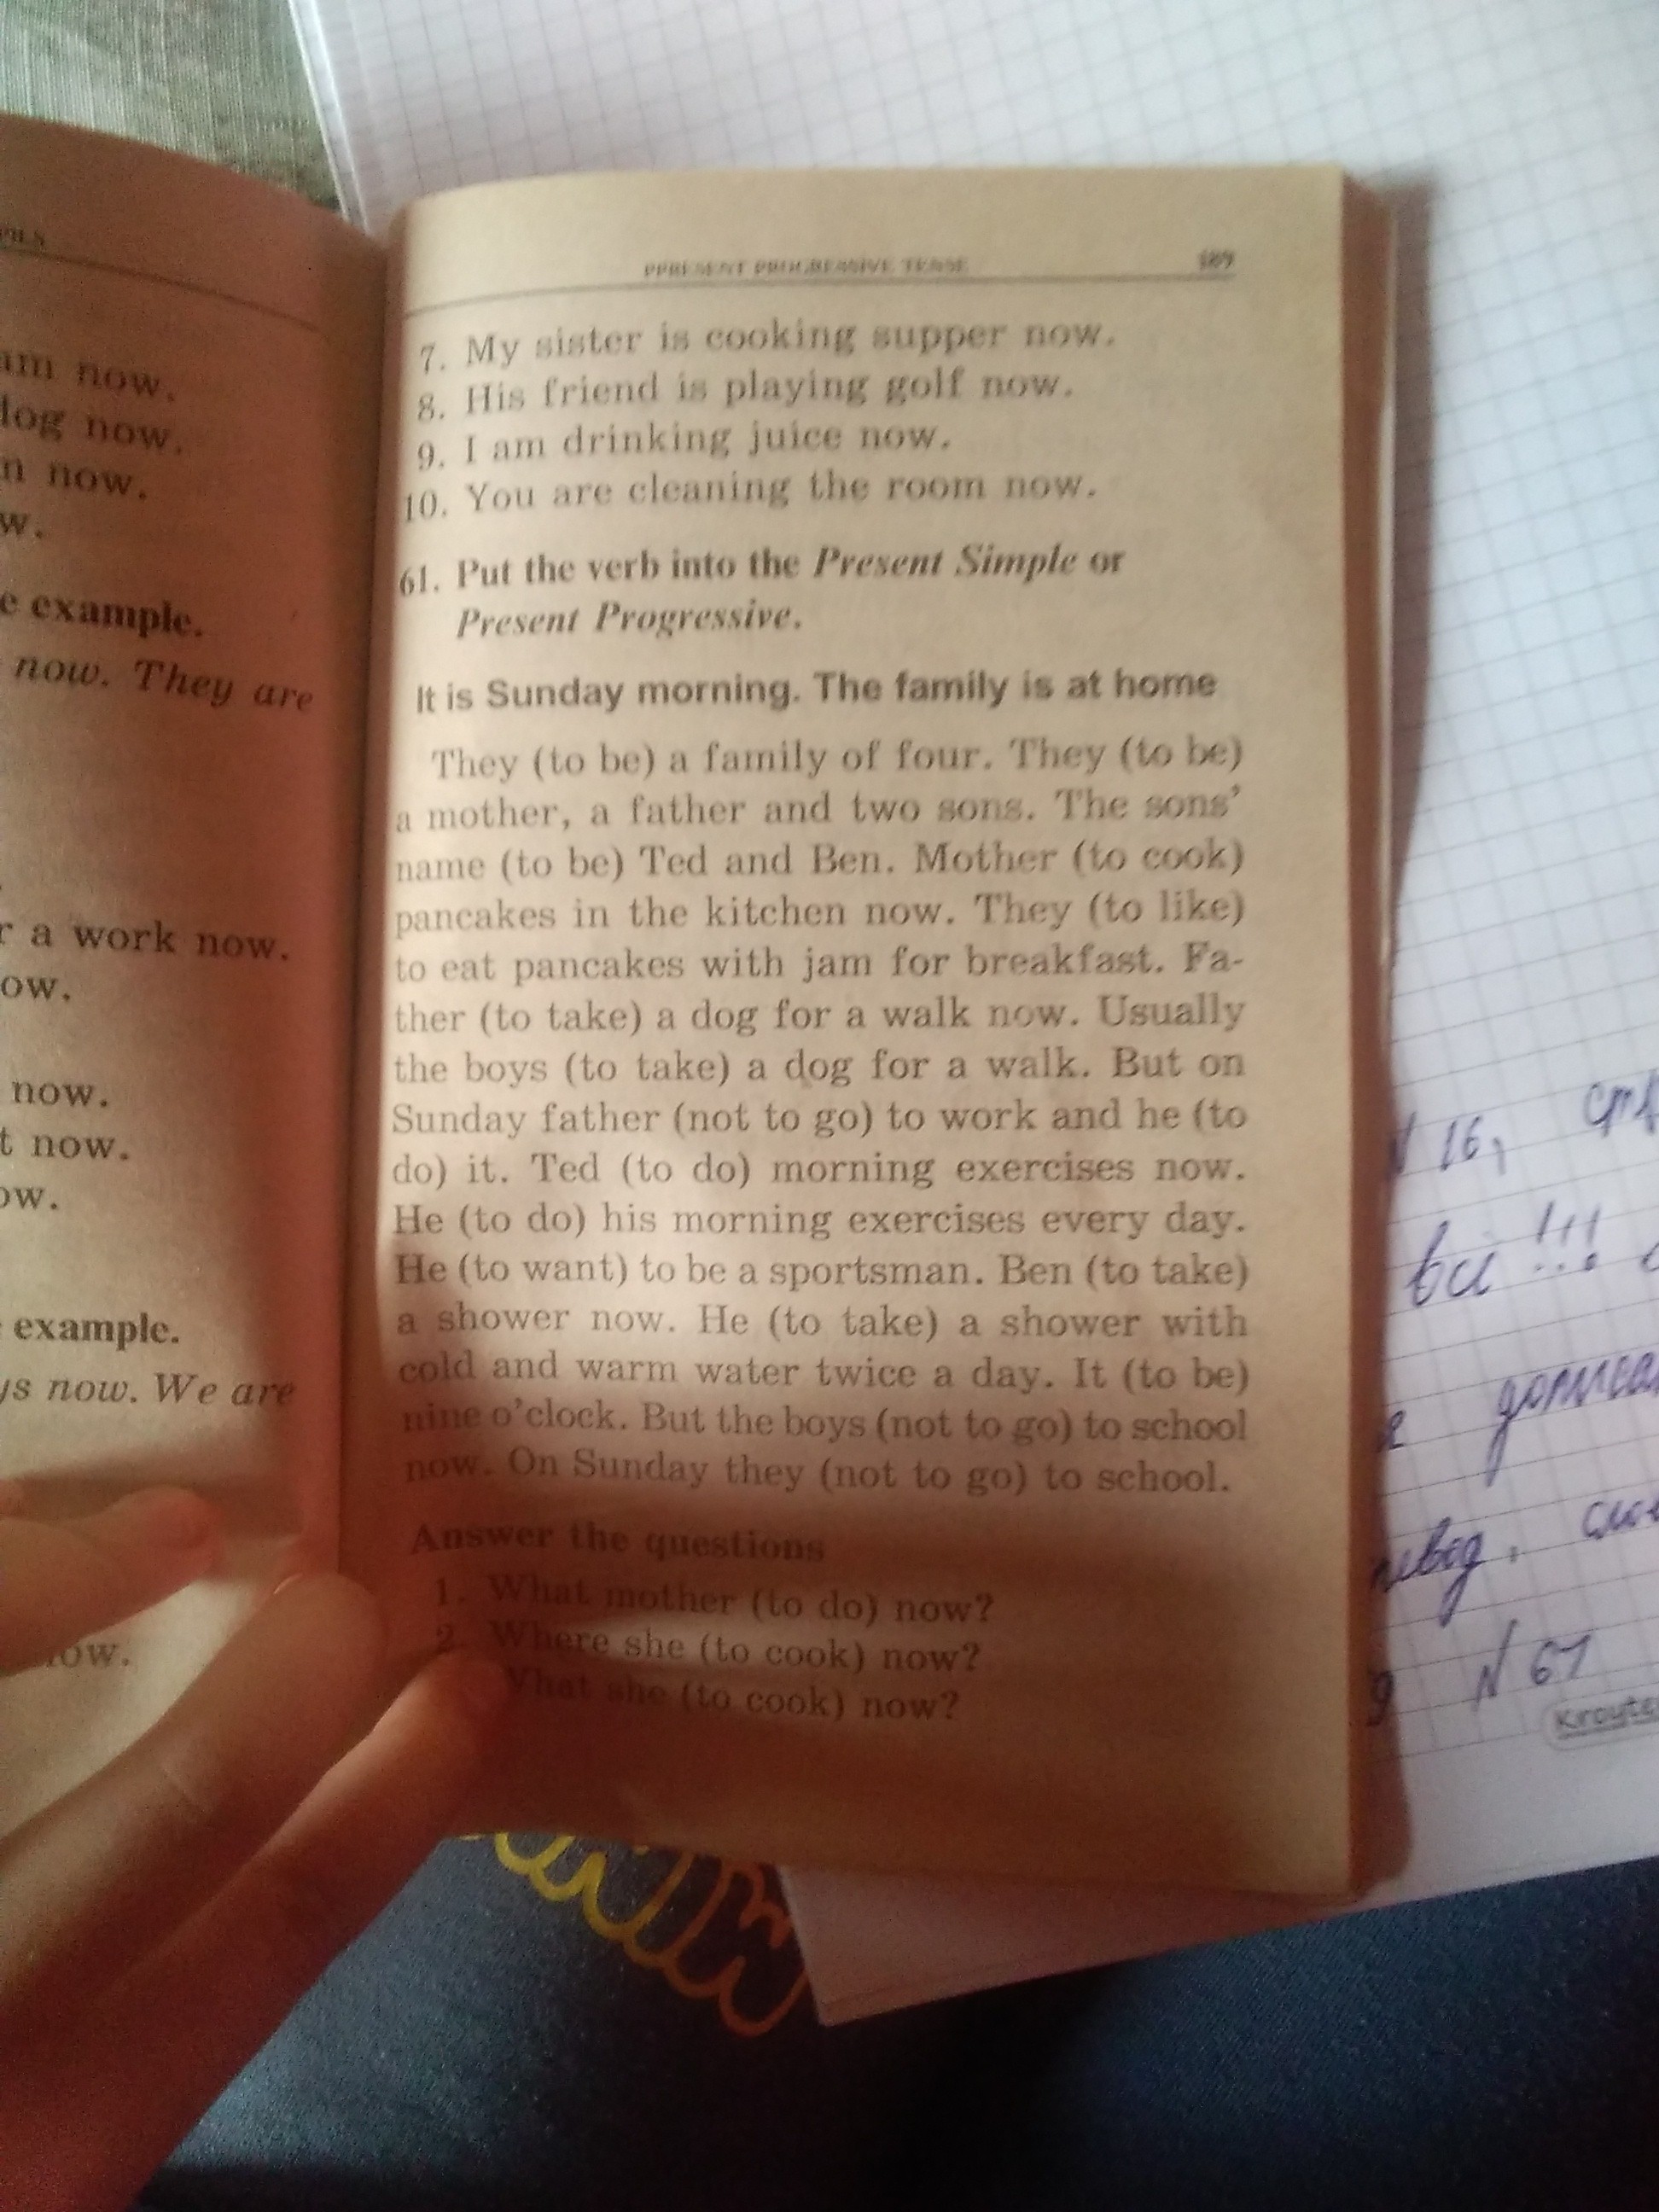 am now.
dog now.
now.
w.
e example.
now. They are
a work now.
ow.
now.
t now.
ow.
example.
ys now. We are
ow.
PPRESENT PROGRESSIVE TENSE 189
7. My sister is cooking supper now.
8. His friend is playing golf now.
9. I am drinking juice now.
10. You are cleaning the room now.
61. Put the verb into the Present Simple or
Present Progressive.
It is Sunday morning. The family is at home
They (to be) a family of four. They (to be)
a mother, a father and two sons. The sons’
name (to be) Ted and Ben. Mother (to cook)
pancakes in the kitchen now. They (to like)
to eat pancakes with jam for breakfast. Fa-
ther (to take) a dog for a walk now. Usually
the boys (to take) a dog for a walk. But on
Sunday father (not to go) to work and he (to
do) it. Ted (to do) morning exercises now.
He (to do) his morning exercises every day.
He (to want) to be a sportsman. Ben (to take)
a shower now. He (to take) a shower with
cold and warm water twice a day. It (to be)
nine o’clock. But the boys (not to go) to school
now. On Sunday they (not to go) to school.
Answer the questions
1. What mother (to do) now?
2. Where she (to cook) now?
What she (to cook) now?
N 16,
всі !!!
N 61